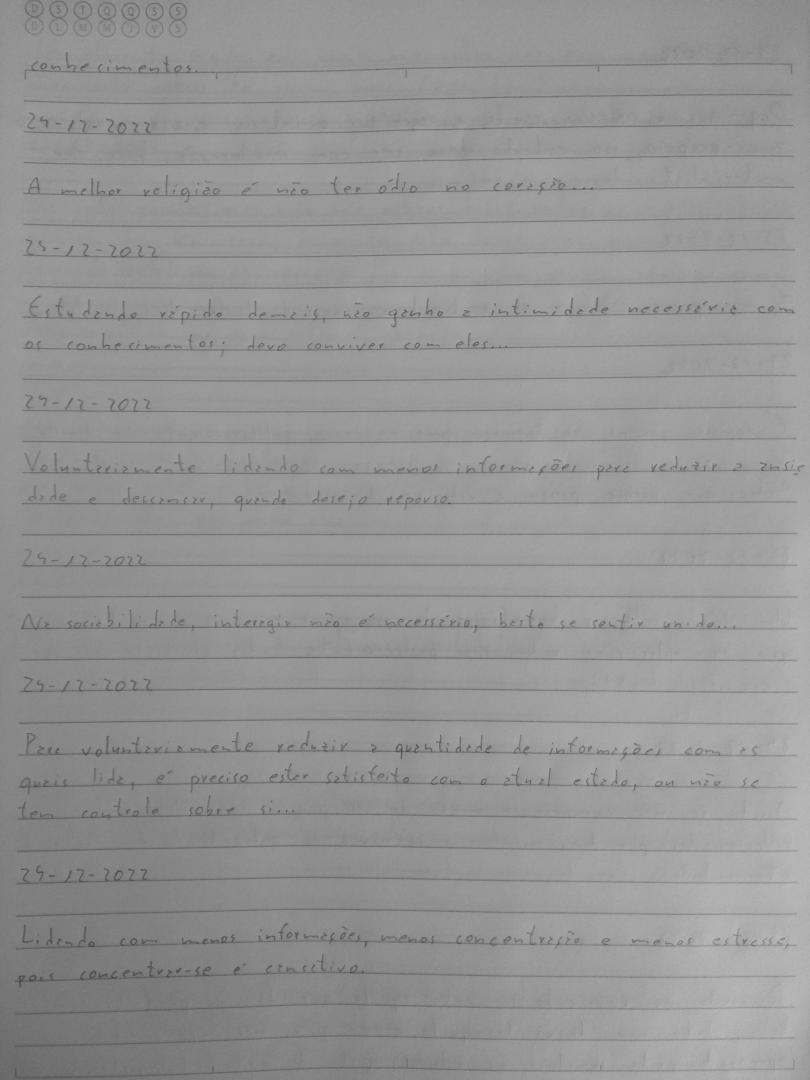 D S T Q Q S S
D L M M J V S
conhecimentos.
24-12-2022
A melhor religião é não ter ódio no coração...
25-12-2022
Estudando rápido demais, não ganho a intimidade necessária com
os conhecimentos; devo conviver com eles...
29-12-2022
Voluntariamente lidando com menos informações para reduzir a ansie
dade e descansar, quando desejo repouso.
29-12-2022
Na sociabilidade, interagir não é necessário, basta se sentir unido...
29-12-2022
Para voluntariamente reduzir a quantidade de informações com as
quais lida, é preciso estar satisfeito com o atual estado, ou não se
tem controle sobre si...
29-12-2022
Lidando com menos informações, menos concentração e menos estresse,
pois concentrar-se é cansativo.